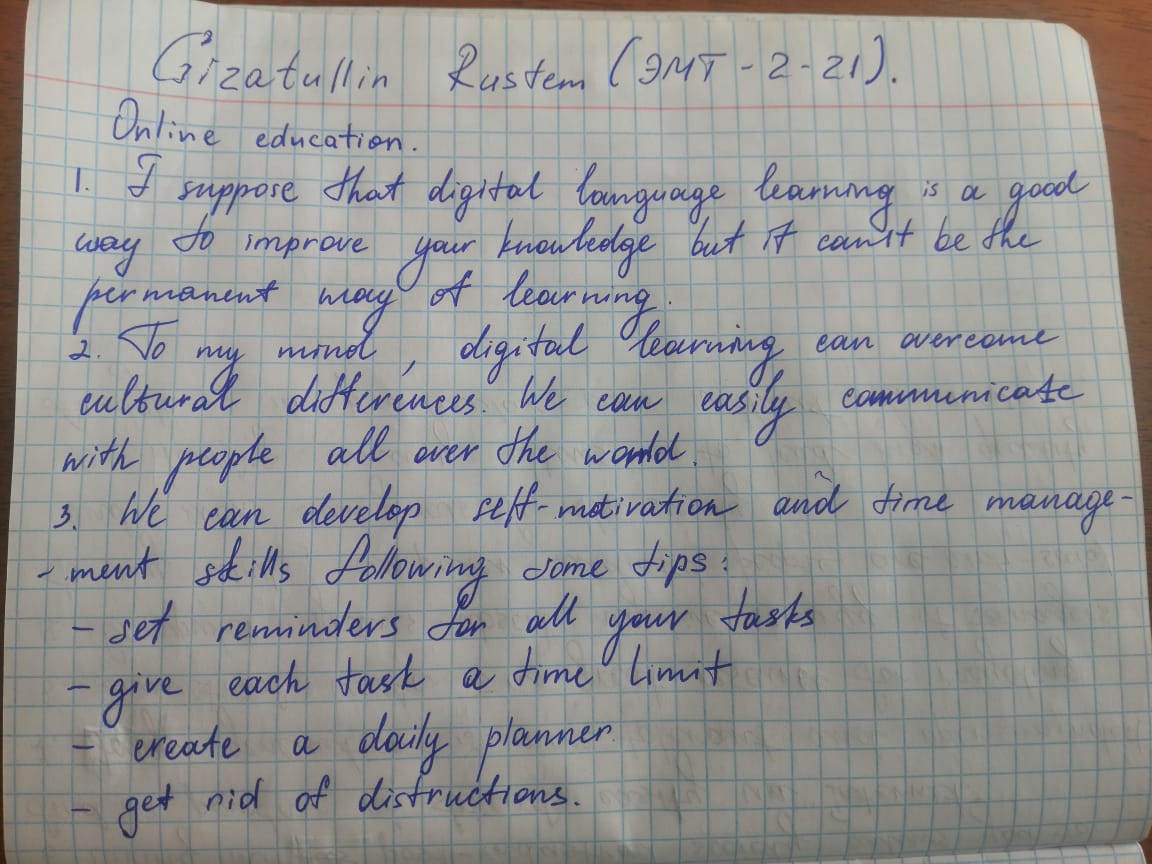 Gizatullin Rustem (ЭМТ-2-21).
Online education.
1. I suppose that digital language learning is a good
way to improve your knowledge but it can't be the
permanent way of learning.
2. To my mind, digital learning can overcome
cultural differences. We can easily communicate
with people all over the world.
3. We can develop self-motivation and time manage-
-ment skills following some tips:
- set reminders for all your tasks
- give each task a time limit
- create a daily planner
- get rid of distructions.